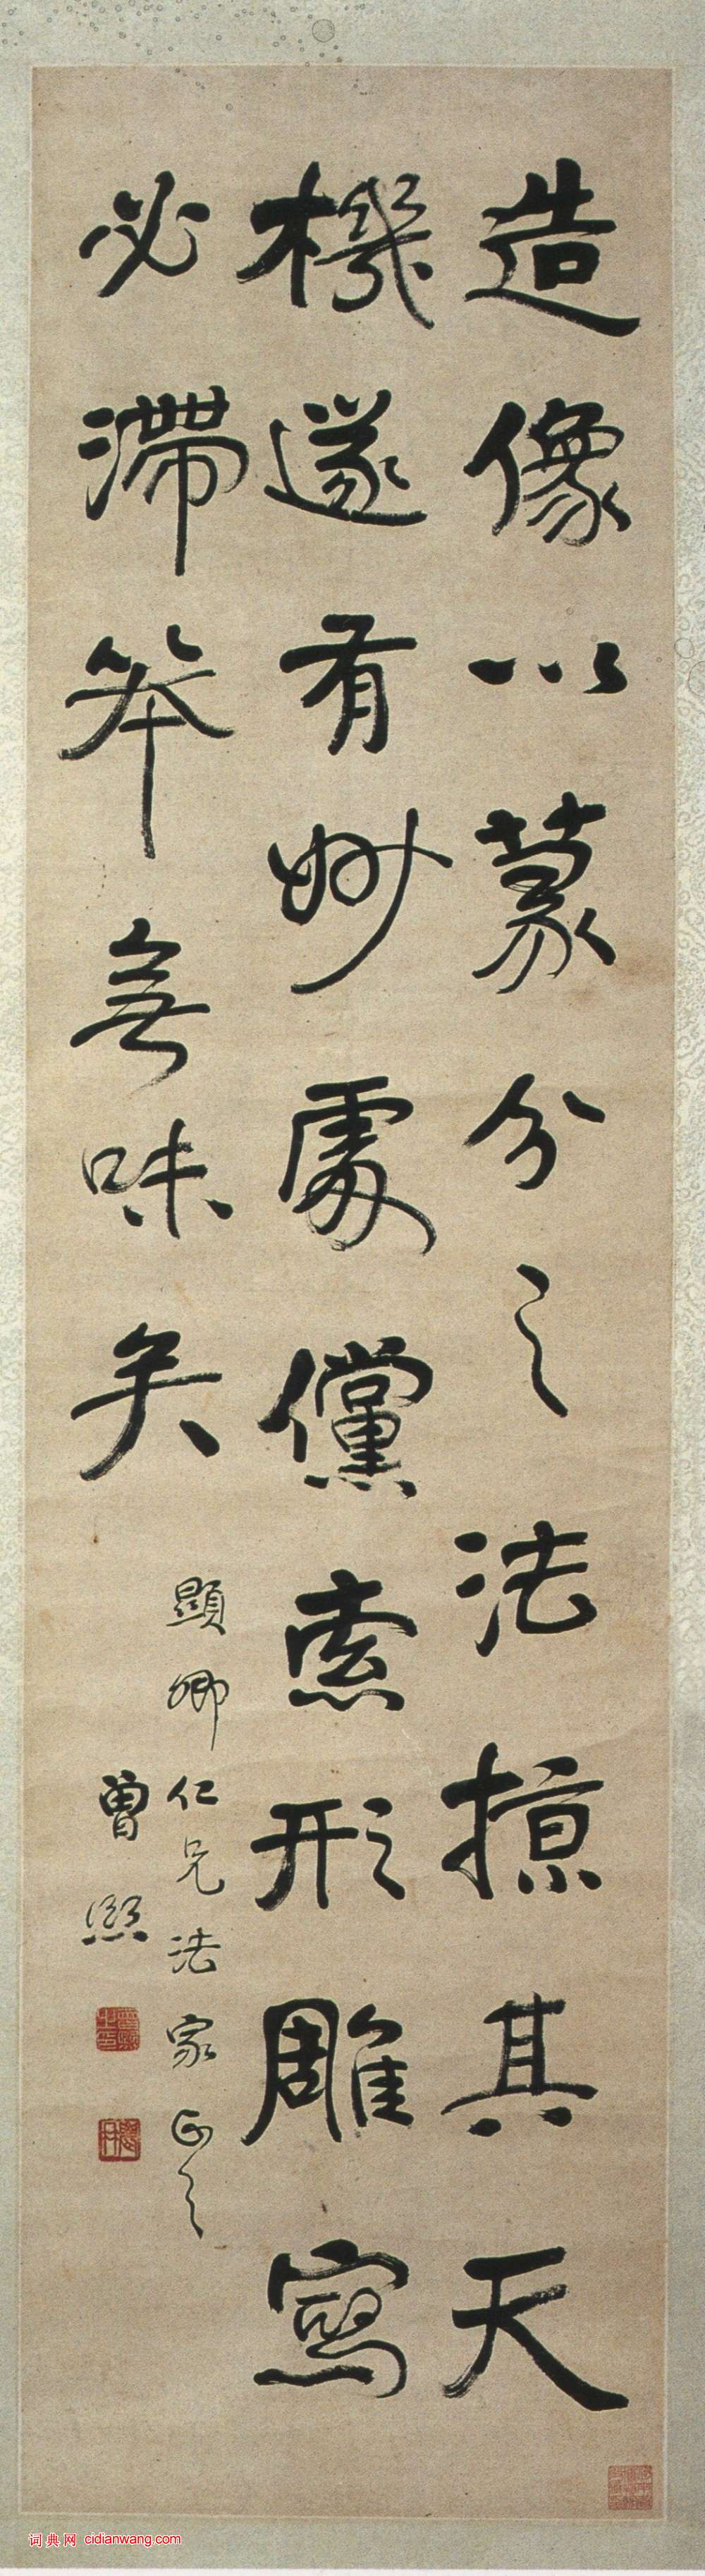 造像以篆分之法掠其天
機遂有妙處儻索形雕寫
必滯笨無味矣
顯卿仁兄法家正之
曾熙
词典网 cidianwang.com